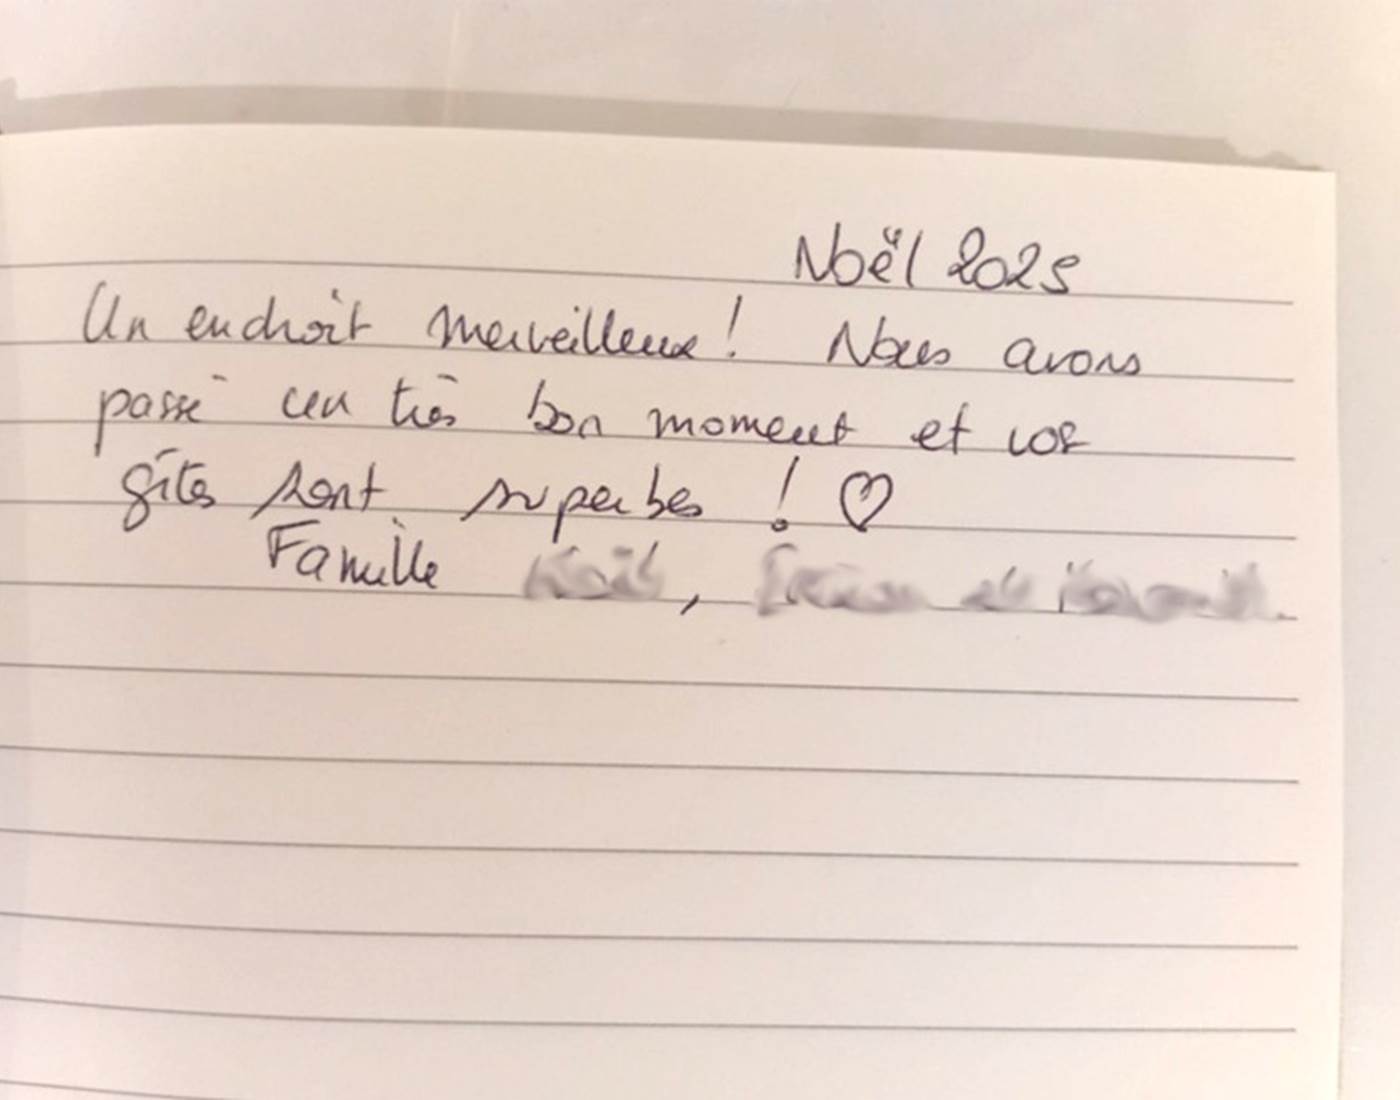 Noël 2025
Un endroit merveilleux ! Nous avons
passé un très bon moment et vos
gîtes sont superbes ! ♡
Famille